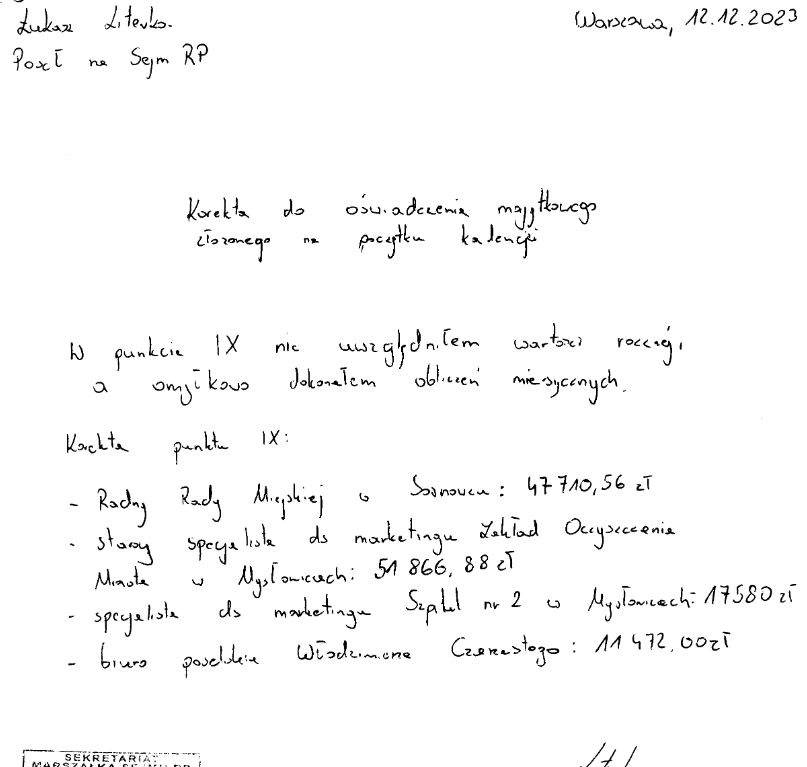 Łukasz Litewka.
Warszawa, 12.12.2023
Poseł na Sejm RP
Korekta do oświadczenia majątkowego
złożonego na początku kadencji
W punkcie IX nie uwzględniłem wartości rocznej,
a omyłkowo dokonałem obliczeń miesięcznych.
Korekta punktu IX:
- Radny Rady Miejskiej w Sosnowcu: 47 710,56 zł
- starszy specjalista ds marketingu Zakład Oczyszczania
Miasta w Mysłowicach: 51 866,88 zł
- specjalista ds marketingu Szpital nr 2 w Mysłowicach: 17580 zł
- biuro poselskie Włodzimierza Czarzastego: 11 472,00 zł
SEKRETARIAT
MARSZAŁKA SEJMU RP